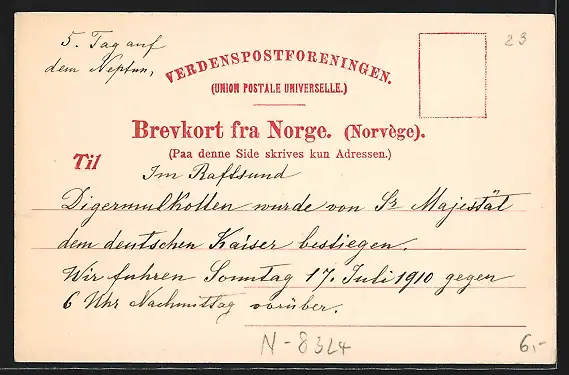 5. Tag auf
dem Neptun,
23
VERDENSPOSTFORENINGEN.
(UNION POSTALE UNIVERSELLE.)
Brevkort fra Norge. (Norvège).
(Paa denne Side skrives kun Adressen.)
Til
Im Raftsund
Digermulkollen wurde von Sr Majestät
dem deutschen Kaiser bestiegen.
Wir fuhren Sonntag 17. Juli 1910 gegen
6 Uhr Nachmittag vorüber.
N-8324
6,-